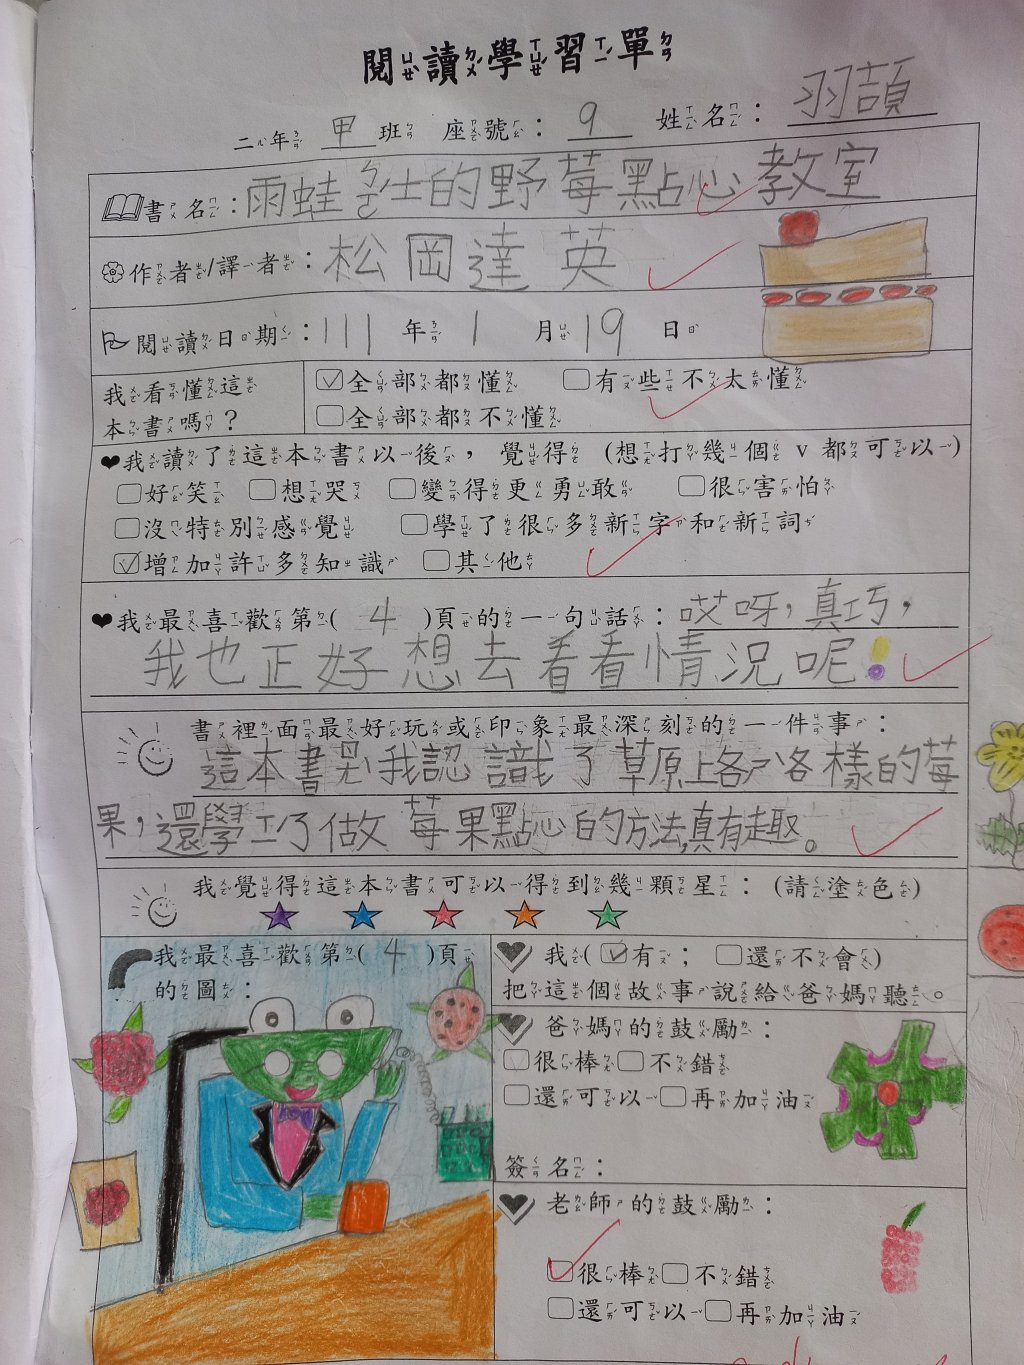 閱讀學習單
二年 甲 班 座號： 9 姓名：羽頡
書名：雨蛙ㄅㄛˊ士的野莓點心教室
作者/譯者：松岡達英
閱讀日期：111 年 1 月 19 日
我看懂這本書嗎？
☑全部都懂 □有些不太懂
□全部都不懂
❤我讀了這本書以後，覺得 (想打幾個 v 都可以)
□好笑 □想哭 □變得更勇敢 □很害怕
□沒特別感覺 □學了很多新字和新詞
☑增加許多知識 □其他
❤我最喜歡第( 4 )頁的一句話：哎呀，真巧，
我也正好想去看看情況呢！
書裡面最好玩或印象最深刻的一件事：
這本書ㄖㄤˋ我認識了草原上各ㄕˋ各樣的莓
果，還學ㄒㄧˊ了做莓果點心的方法，真有趣。
我覺得這本書可以得到幾顆星：(請塗色)
我最喜歡第( 4 )頁
的圖：
我(☑有；□還不會)
把這個故事說給爸媽聽。
爸媽的鼓勵：
☑很棒□不錯
□還可以□再加油
簽名：
老師的鼓勵：
☑很棒□不錯
□還可以□再加油